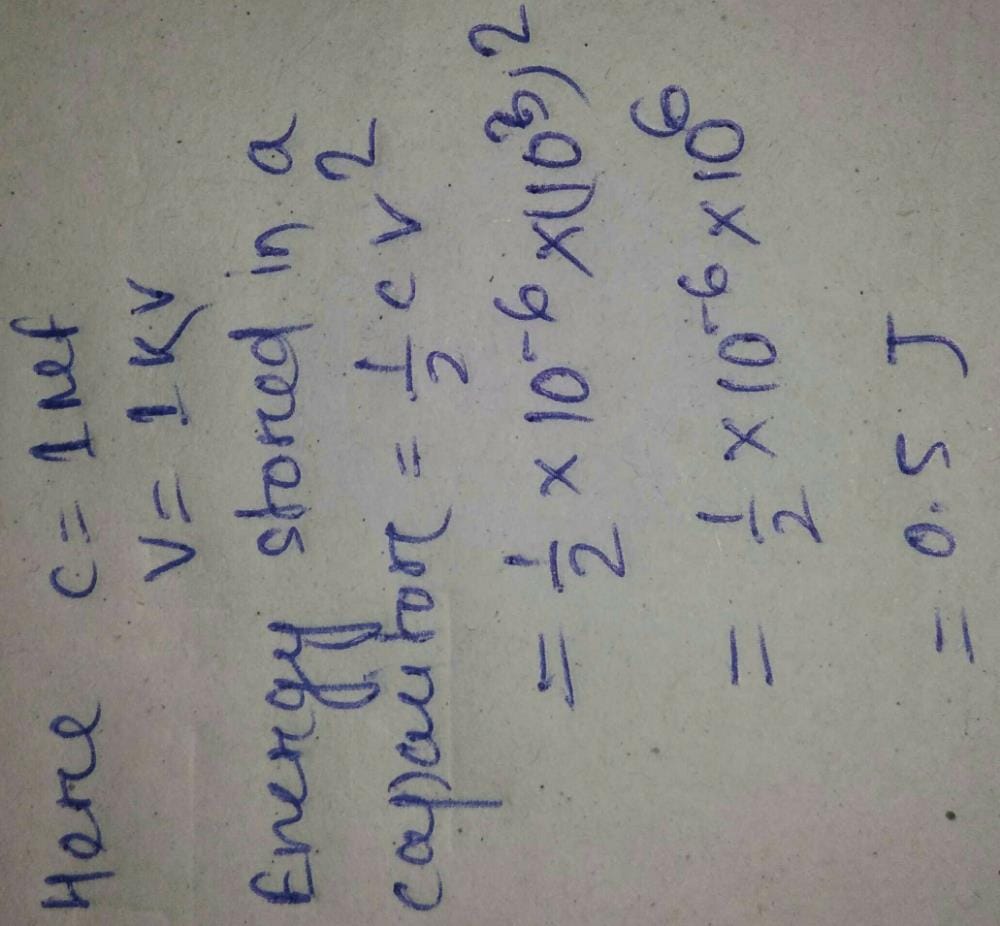 Here C = 1 μf
V = 1 KV
Energy stored in a
capacitor = 1/2 C V²
= 1/2 × 10⁻⁶ × (10³)²
= 1/2 × 10⁻⁶ × 10⁶
= 0.5 J